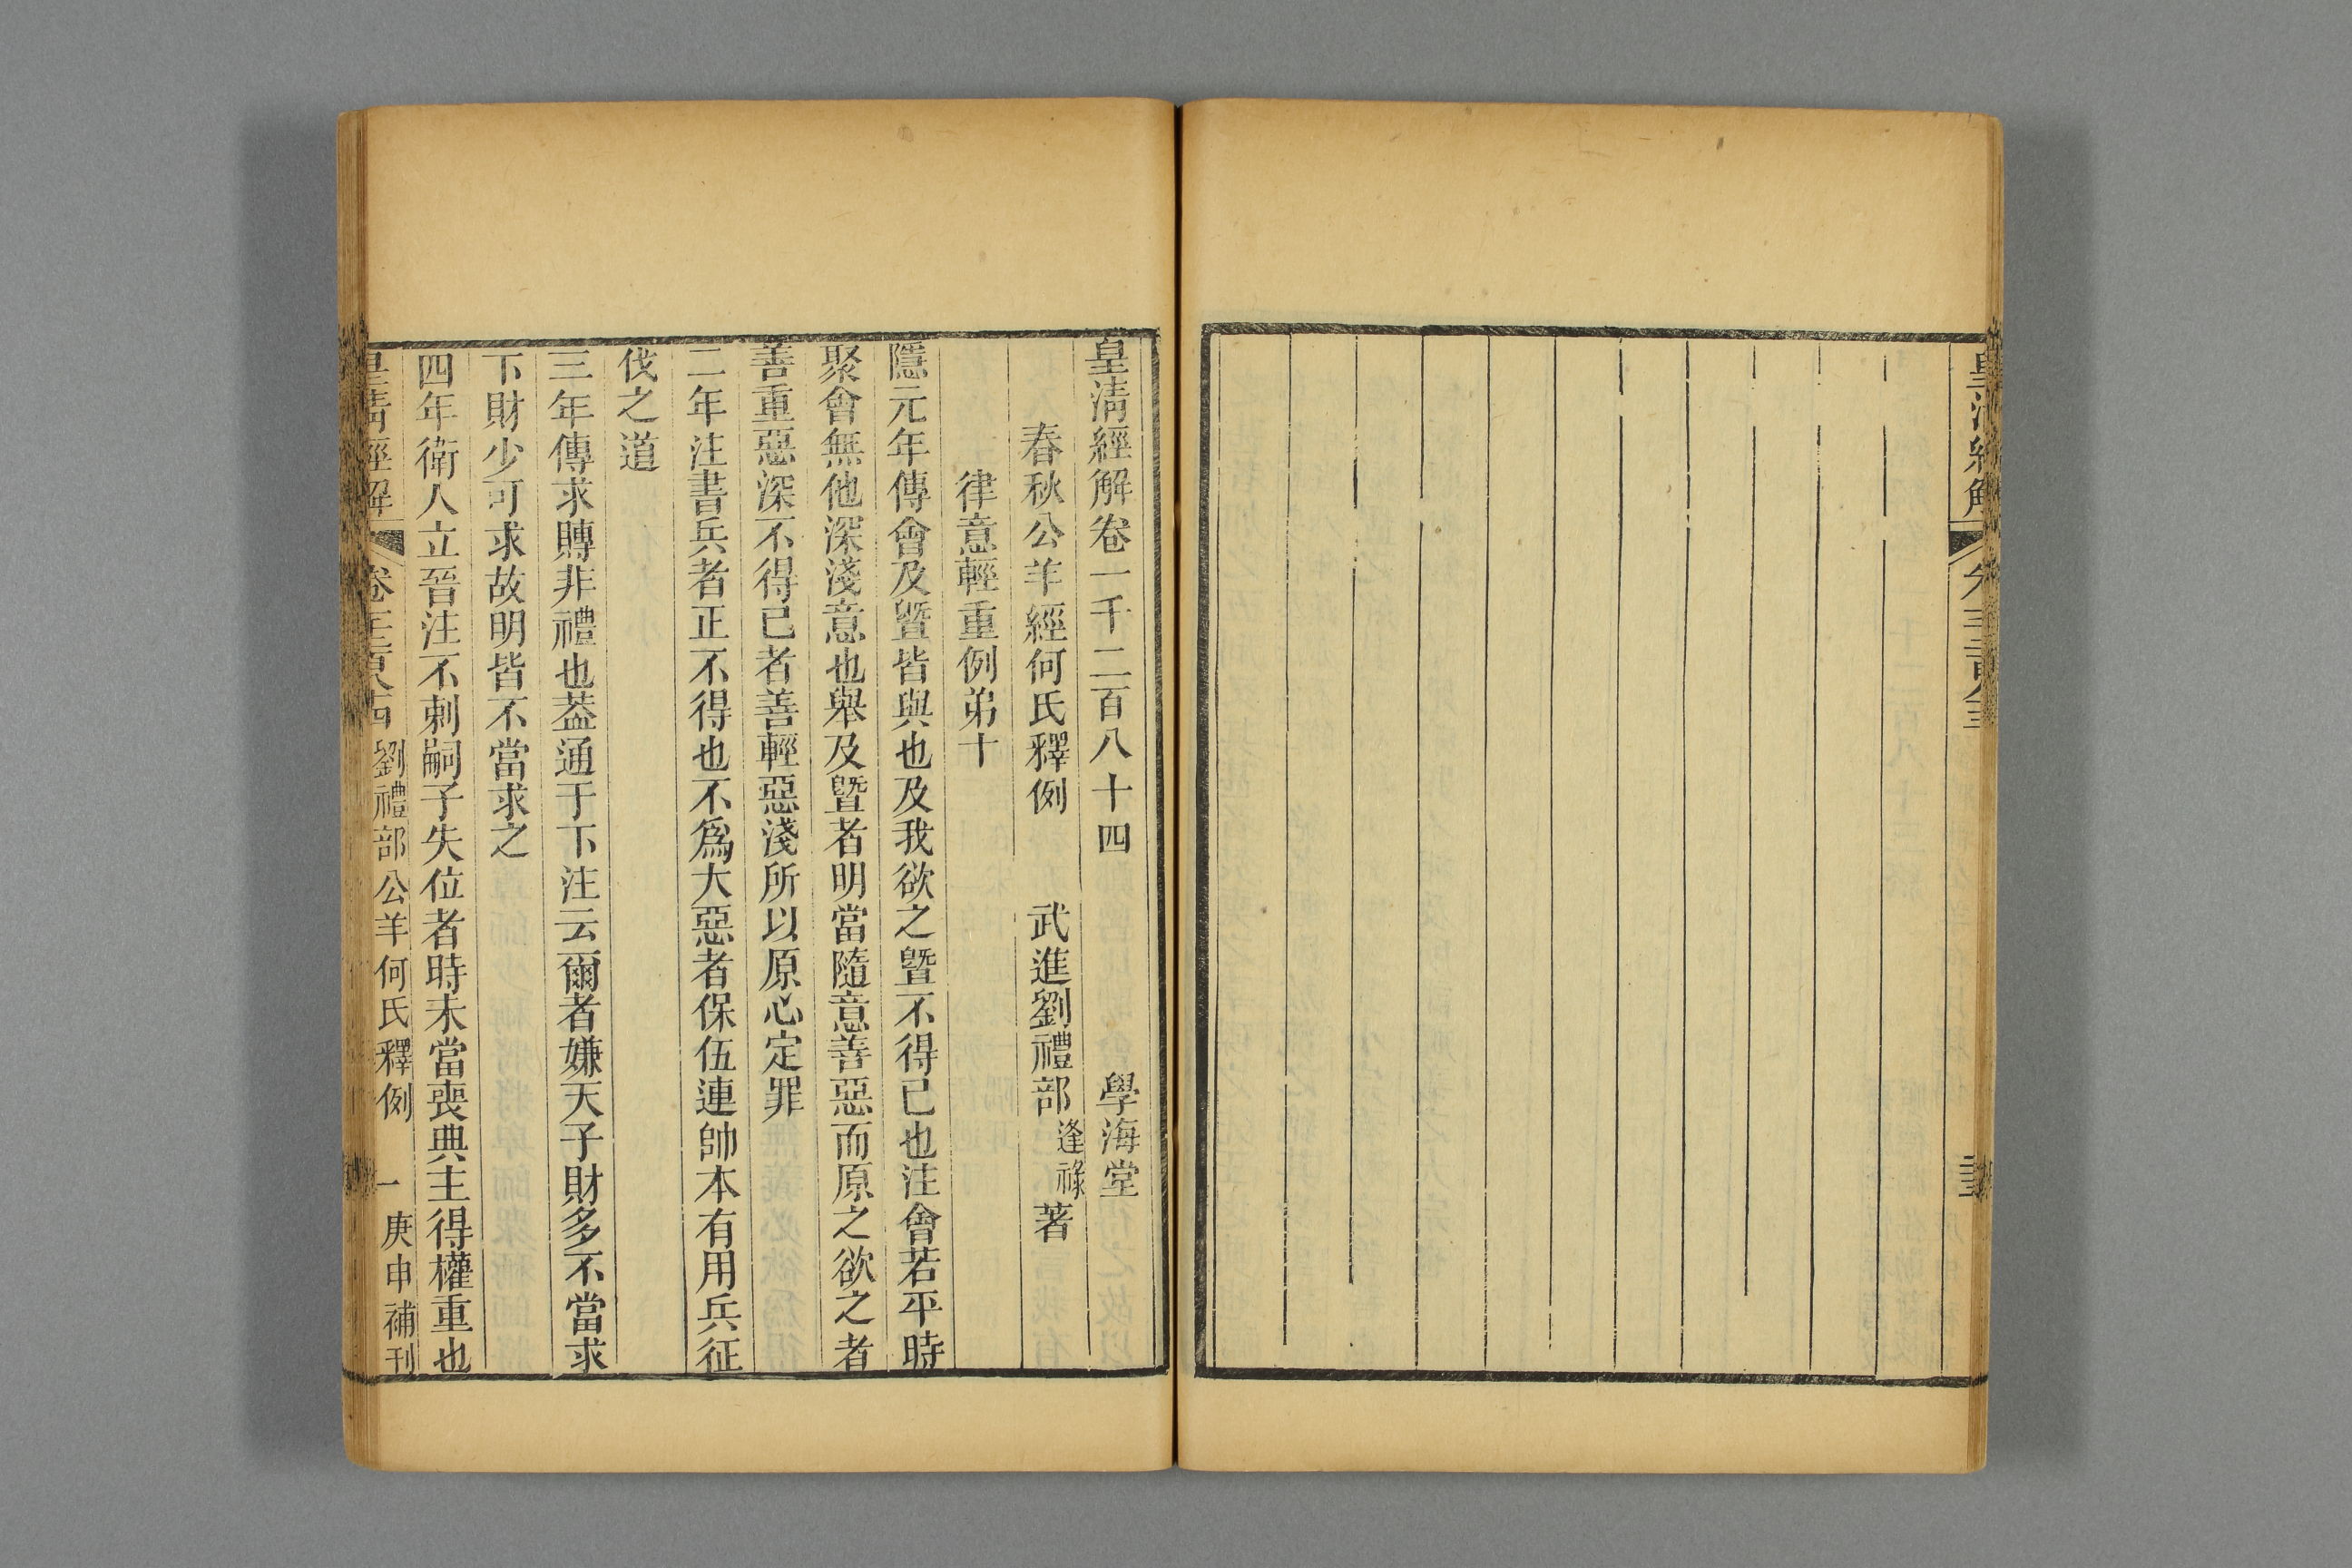 皇清經解
皇清經解卷一千二百八十四 學海堂
春秋公羊經何氏釋例 武進劉禮部逢祿著
律意輕重例弟十
隱元年傳會及暨皆與也及我欲之暨不得已也注會若平時
聚會無他深淺意也舉及暨者明當隨意善惡而原之欲之者
善重惡深不得已者善輕惡淺所以原心定罪
二年注書兵者正不得也不爲大惡者保伍連帥本有用兵征
伐之道
三年傳求賻非禮也葢通于下注云爾者嫌天子財多不當求
下財少可求故明皆不當求之
四年衛人立晉注不刺嗣子失位者時未當喪典主得權重也
皇清經解 卷 劉禮部公羊何氏釋例 一 庚申補刊